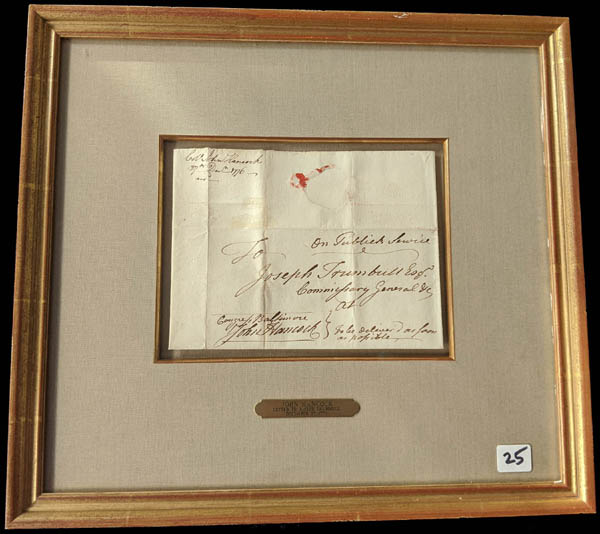 Coll John Hancock
27th Decr 1776
On Publick Service
To
Joseph Trumbull Esqr
Commissary General &c
at
Congress Baltimore
John Hancock
To be deliver'd as soon
as possible
JOHN HANCOCK
25